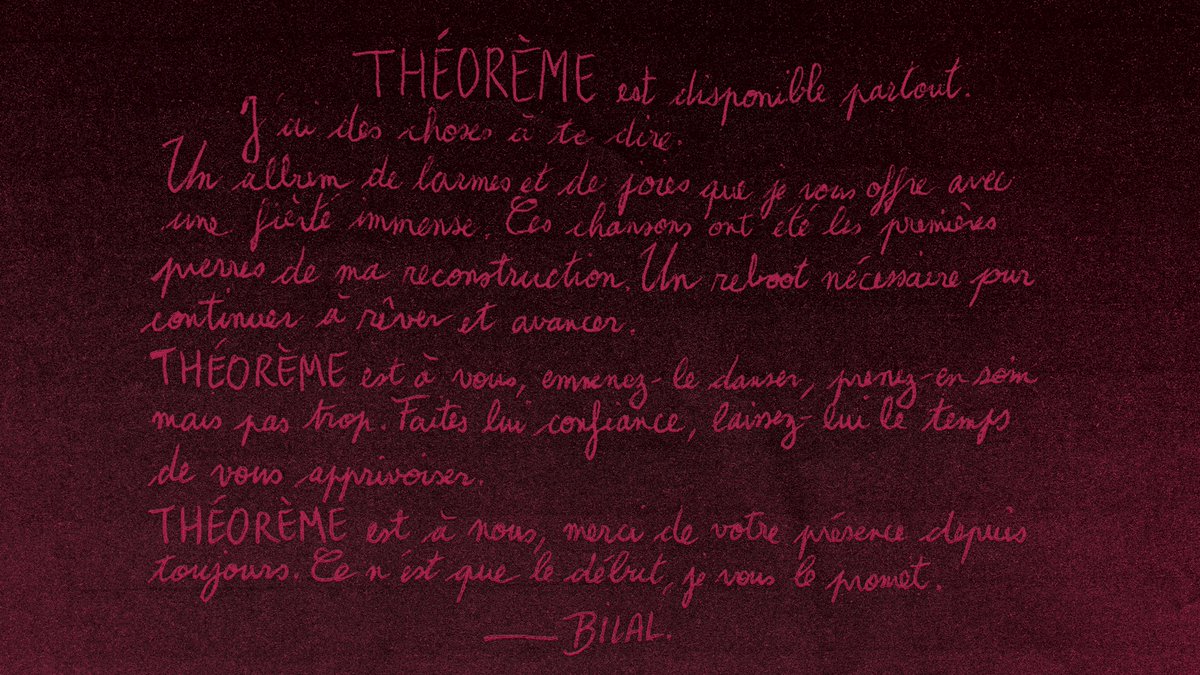 THÉORÈME est disponible partout.
J'ai des choses à te dire.
Un album de larmes et de joies que je vous offre avec
une fierté immense. Ces chansons ont été les premières
pierres de ma reconstruction. Un reboot nécessaire pour
continuer à rêver et avancer.
THÉORÈME est à vous, emmenez-le danser, prenez-en soin
mais pas trop. Faites lui confiance, laissez-lui le temps
de vous apprivoiser.
THÉORÈME est à nous, merci de votre présence depuis
toujours. Ce n'est que le début, je vous le promet.
— BILAL.